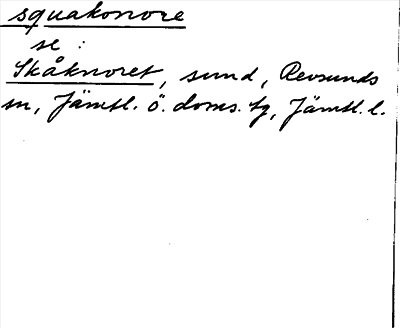 squakonore
se :
Skåknoret, sund, Revsunds
sn, Jämtl. ö. doms. tg, Jämtl. l.